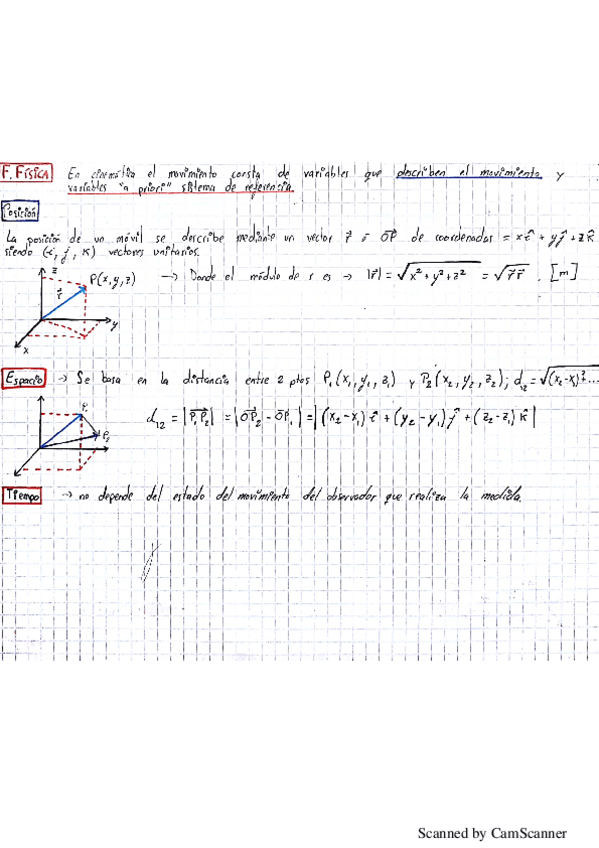 F. FÍSICA En cinemática el movimiento consta de variables que describen el movimiento y
variables "a priori" sistema de referencia.
Posición
La posición de un móvil se describe mediante un vector r⃗ ó OP⃗ de coordenadas = xî + yĵ + zk̂
siendo (î, ĵ, k̂) vectores unitarios.
z
P(x,y,z) → Donde el módulo de r es → |r⃗| = √(x² + y² + z²) = √(r⃗ r⃗) . [m]
r⃗
y
x
Espacio → Se basa en la distancia entre 2 ptos P₁(x₁, y₁, z₁) y P₂(x₂, y₂, z₂); d₁₂ = √(x₂-x₁)²....
P₁
d₁₂ = |P₁P₂⃗| = |OP₂⃗ - OP₁⃗| = |(x₂-x₁)î + (y₂-y₁)ĵ + (z₂-z₁)k̂|
P₂
Tiempo → no depende del estado del movimiento del observador que realiza la medida.
Scanned by CamScanner